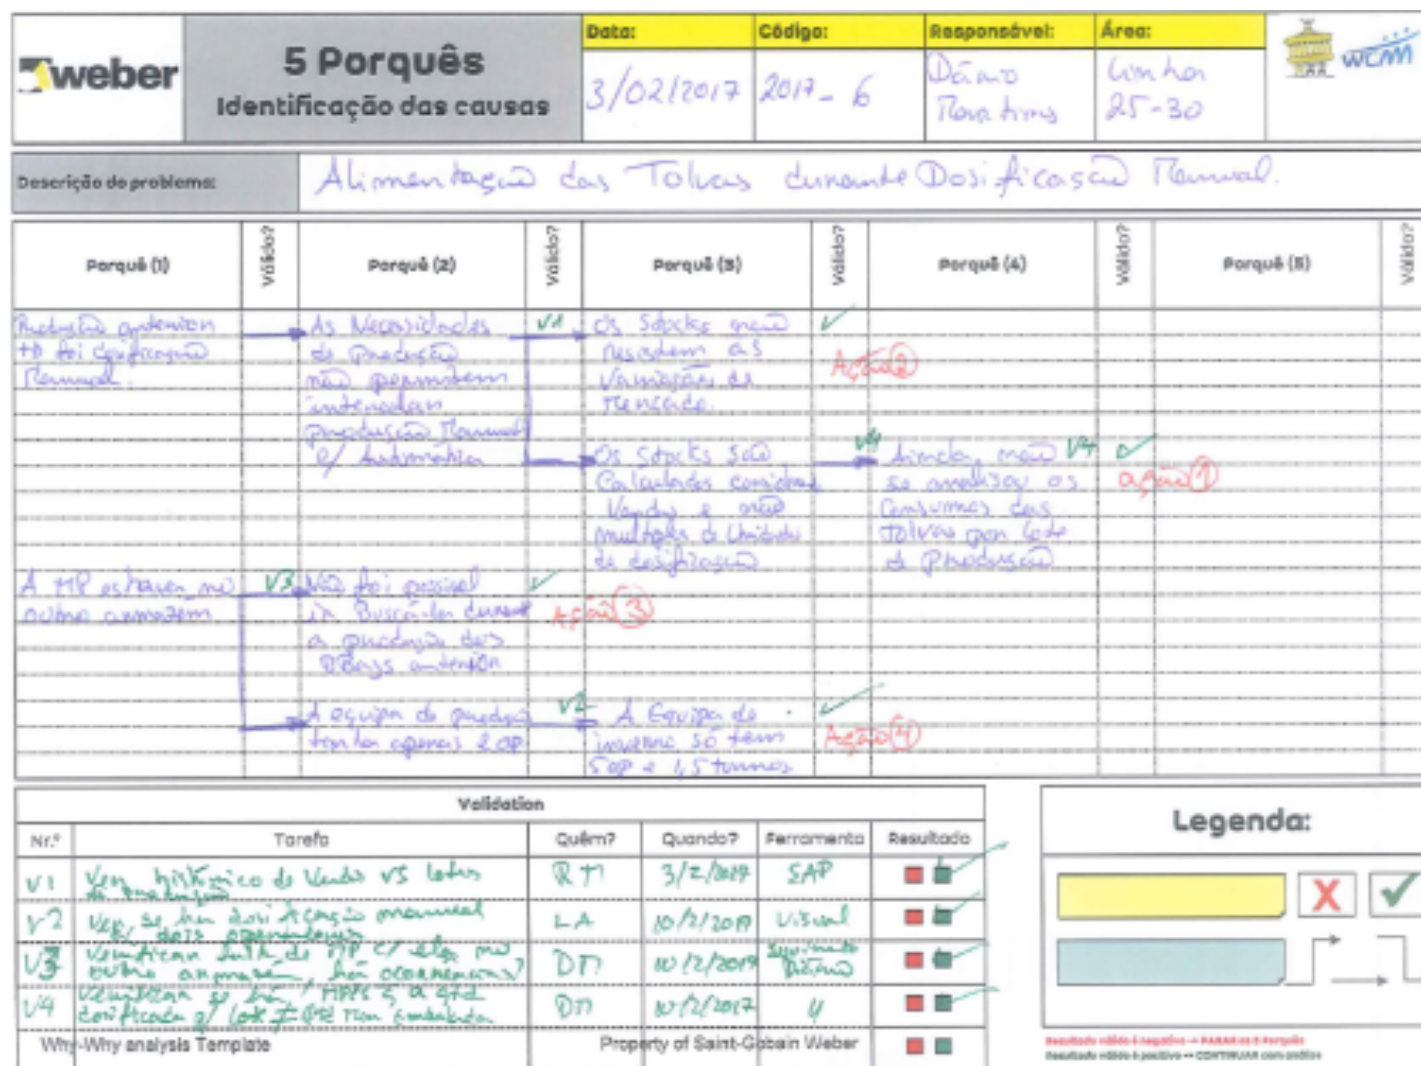 weber
5 Porquês
Identificação das causas
Data:
3/02/2017
Código:
2017-6
Responsável:
Dário
Martins
Área:
Linha
25-30
WCM
Descrição do problema:
Alimentação das Tolvas durante Dosificação Manual.
Porquê (1)
Válido?
Porquê (2)
Válido?
Porquê (3)
Válido?
Porquê (4)
Válido?
Porquê (5)
Válido?
Produção anterior
foi dosificação
Manual.
As Necessidades
de produção
não permitem
intercalar
produção Manual
c/ Automática
V1
Os Stocks não
resistem as
Variações de
Mercado.
Ação 2
Os Stocks são
Calculados
Vendas e não
multiplos de Unidade
de dosificação
V4
Ainda não
se analisou os
Consumos das
Tolvas por Lote
de Produção
V4
ação 1
A MP estava no
outro armazem
V3
Não foi possivel
ir Buscá-la durante
a produção dos
anterior
Ação 3
A equipa de
tenha apenas 2 op
V2
A Equipa de
inverno só tem
5op e 1,5 turnos
Ação 4
Validation
Nr.º
Tarefa
Quêm?
Quando?
Ferramenta
Resultado
V1
Ver histórico de Vendas vs lotes
de produção
RM
3/2/2017
SAP
V2
Ver se há dosificação manual
c/ dois operadores
LA
10/2/2017
Visual
V3
Verificar falta de MP c/ ela no
outro armazem, há ocorrencias?
DM
10/2/2017
Seguimento
Diário
V4
Verificar se há MPs
dosificada p/ Lote ≠
DM
10/2/2017
Why-Why analysis Template
Property of Saint-Gobain Weber
Legenda:
Resultado válido é negativo → PARAR os 5 Porquês
Resultado válido é positivo → CONTINUAR com análise